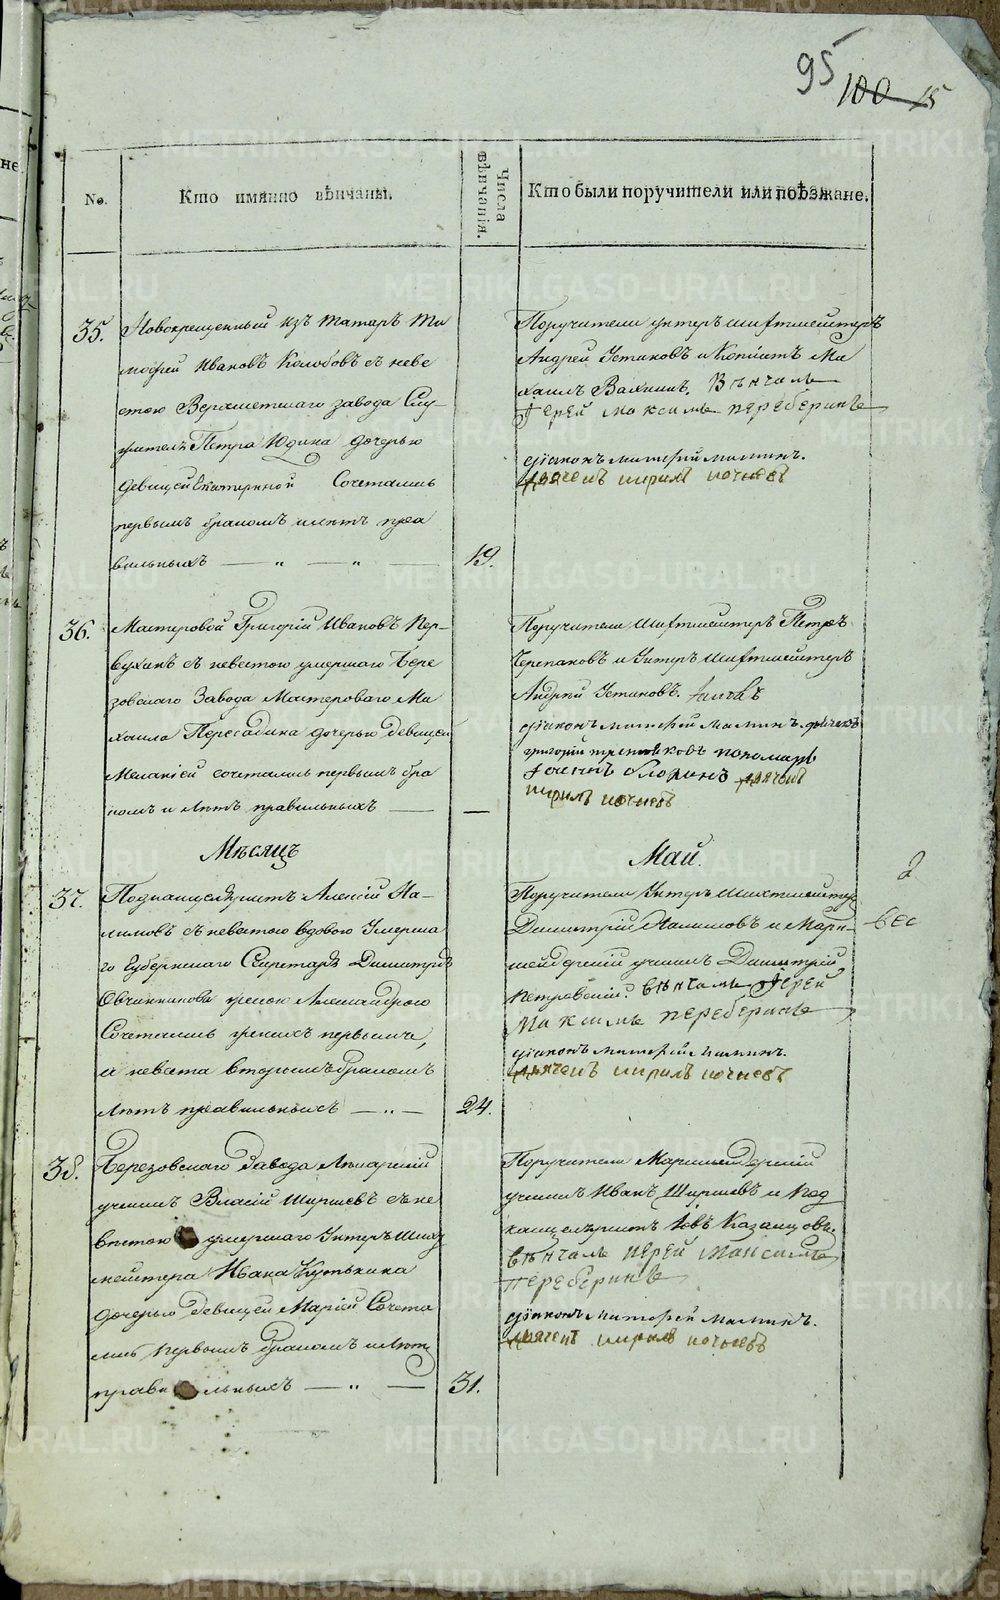 95 100 15
No.
Кто имянно вѣнчаны.
Числа вѣнчанія.
Кто были поручители или поѣзжане.
35.
Новокрещенный изъ татаръ Ти
мофей Ивановъ Колобовъ съ неве
стою Верхисетскаго завода Слу-
жителя Петра Юдина дочерью
девицей Екатериной Сочетались
первымъ бракомъ и лѣтъ пра
вильныхъ — „ — „ —
19.
Поручители унтеръ шихтмейстеръ
Андрей Устиновъ и Копіистъ Ми
хаилъ Вяхинъ. Вѣнчалъ
Іерей Максимъ Переберинъ
діаконъ Матфей Маминъ.
дьячекъ Кирилъ
36.
Мастеровой Григорій Ивановъ Пер-
вухинъ съ невестою умершаго Бере
зовскаго Завода Мастероваго Ми
хаила Пересадина дочерью девицей
Меланіей сочетались первымъ бра
комъ и лѣтъ правильныхъ —
—
Поручители Шихтмейстеръ Петръ
Черепановъ и Унтеръ Шихтмейстеръ
Андрей Устиновъ.
діаконъ Матфей Маминъ. дьячекъ
григорій пономарь
Флоринъ дьячекъ
Кирилъ
Мѣсяцъ
Май.
37.
Подканцеляристъ Алексій На-
лимовъ съ невестою вдовою Умерша
го Губернскаго Секретаря Димитрія
Овчинникова женою Александрою
Сочетались женихъ первымъ,
а невеста вторымъ бракомъ
лѣтъ правильныхъ — „ —
24.
Поручители Унтеръ Шихтмейстеръ
Димитрій Налимовъ и Марк-
шейдерскій ученикъ Димитрій
Петровскій. вѣнчалъ Іерей
Максимъ Переберинъ
діаконъ Матфей Маминъ.
дьячекъ Кирилъ
2
вес
38.
Березовскаго Завода Лекарскій
ученикъ Власій Ширшевъ съ не
вестою умершаго Унтеръ Шихт
мейстера Ивана Кутькина
дочерью девицей Маріей Сочета
лись первымъ бракомъ и лѣтъ
прави льныхъ — „ —
31.
Поручители Маркшейдерскій
ученикъ Иванъ Ширшевъ и Под
канцеляристъ Іовъ Казанцовъ.
вѣнчалъ Іерей Максимъ
Переберинъ
діаконъ Матфей Маминъ.
дьячекъ Кирилъ
METRIKI.GASO-URAL.RU